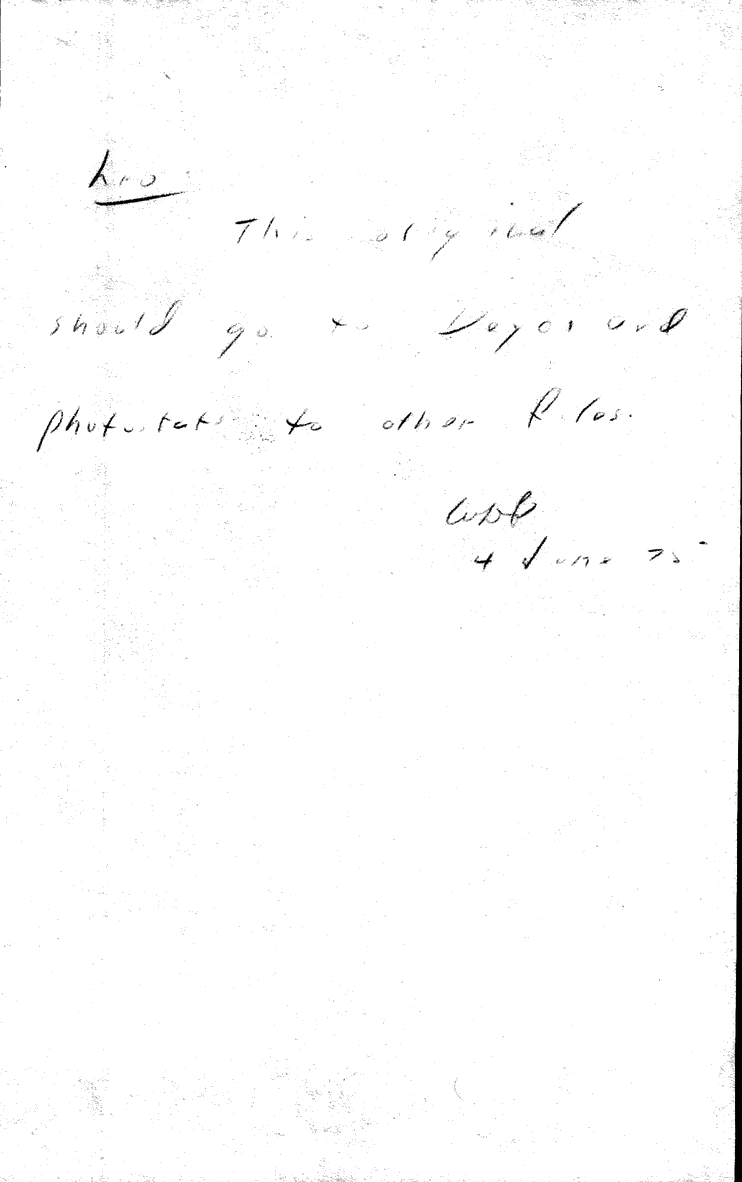 Leo:
This original
should go to Deyos and
photostats to other files.
4 June 75